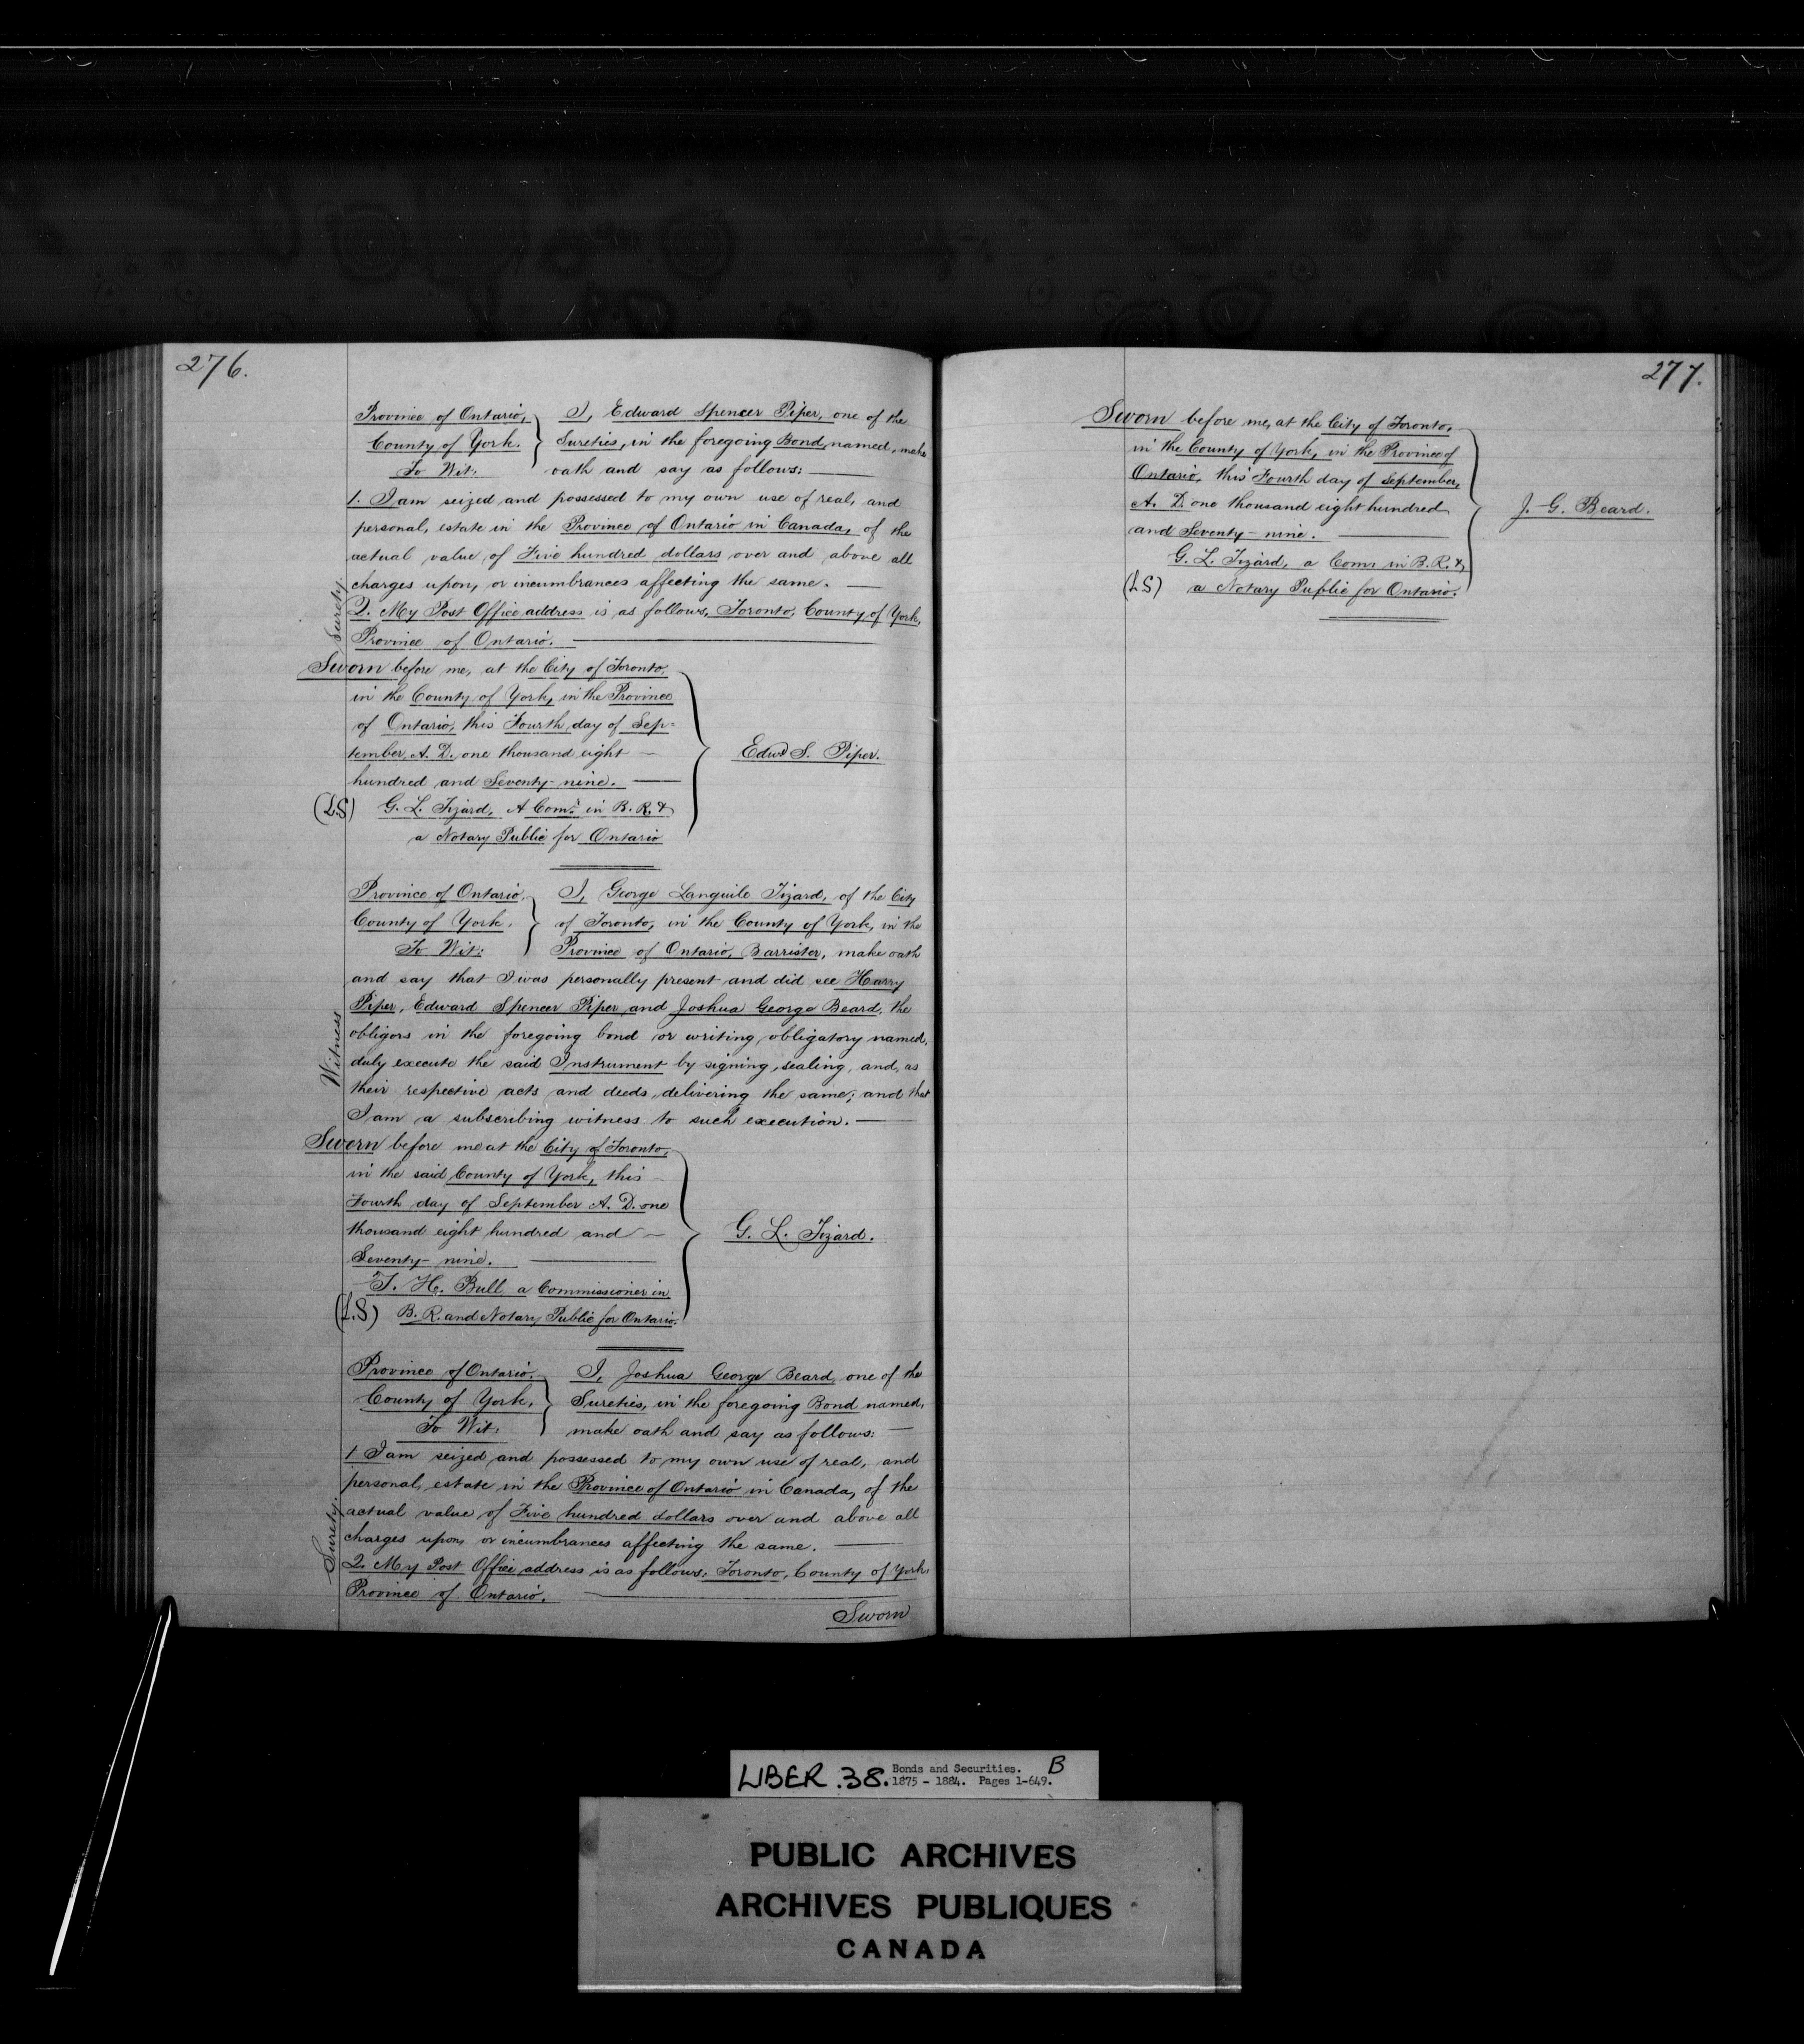 276.
Province of Ontario,
County of York.
To Wit:
I, Edward Spencer Piper, one of the
Sureties, in the foregoing Bond, named, make
oath and say as follows:
1. I am seized and possessed to my own use of real, and
personal, estate in the Province of Ontario in Canada, of the
actual value of Five hundred dollars over and above all
charges upon, or incumbrances affecting the same.
2. My Post Office address is as follows, Toronto, County of York,
Province of Ontario.
Surety
Sworn before me, at the City of Toronto,
in the County of York, in the Province
of Ontario, this Fourth day of Sep-
tember, A. D. one thousand eight
hundred and Seventy-nine.
(L.S) G. L. Tizard, A Comr. in B. R. &
a Notary Public for Ontario
Edwd S. Piper.
Province of Ontario,
County of York,
To Wit:
I, George Languile Tizard, of the City
of Toronto, in the County of York, in the
Province of Ontario, Barrister, make oath
and say that I was personally present and did see Harry
Piper, Edward Spencer Piper and Joshua George Beard, the
obligors in the foregoing bond or writing obligatory named,
duly execute the said Instrument by signing, sealing, and, as
their respective acts and deeds, delivering the same; and that
I am a subscribing witness to such execution.
Witness
Sworn before me at the City of Toronto,
in the said County of York, this
Fourth day of September A. D. one
thousand eight hundred and
Seventy-nine.
T. H. Bull a Commissioner in
(L.S) B. R. and Notary Public for Ontario.
G. L. Tizard.
Province of Ontario,
County of York,
To Wit:
I, Joshua George Beard, one of the
Sureties, in the foregoing Bond named,
make oath and say as follows:
1 I am seized and possessed to my own use of real, and
personal, estate in the Province of Ontario in Canada, of the
actual value of Five hundred dollars over and above all
charges upon, or incumbrances affecting the same.
2. My Post Office address is as follows, Toronto, County of York,
Province of Ontario.
Surety.
Sworn
277.
Sworn before me, at the City of Toronto,
in the County of York, in the Province of
Ontario, this Fourth day of September,
A. D. one thousand eight hundred
and Seventy-nine.
G. L. Tizard, a Comr in B. R. &
(L.S) a Notary Public for Ontario.
J. G. Beard.
LIBER .38. Bonds and Securities. B
1875 - 1884. Pages 1-649.
PUBLIC ARCHIVES
ARCHIVES PUBLIQUES
CANADA